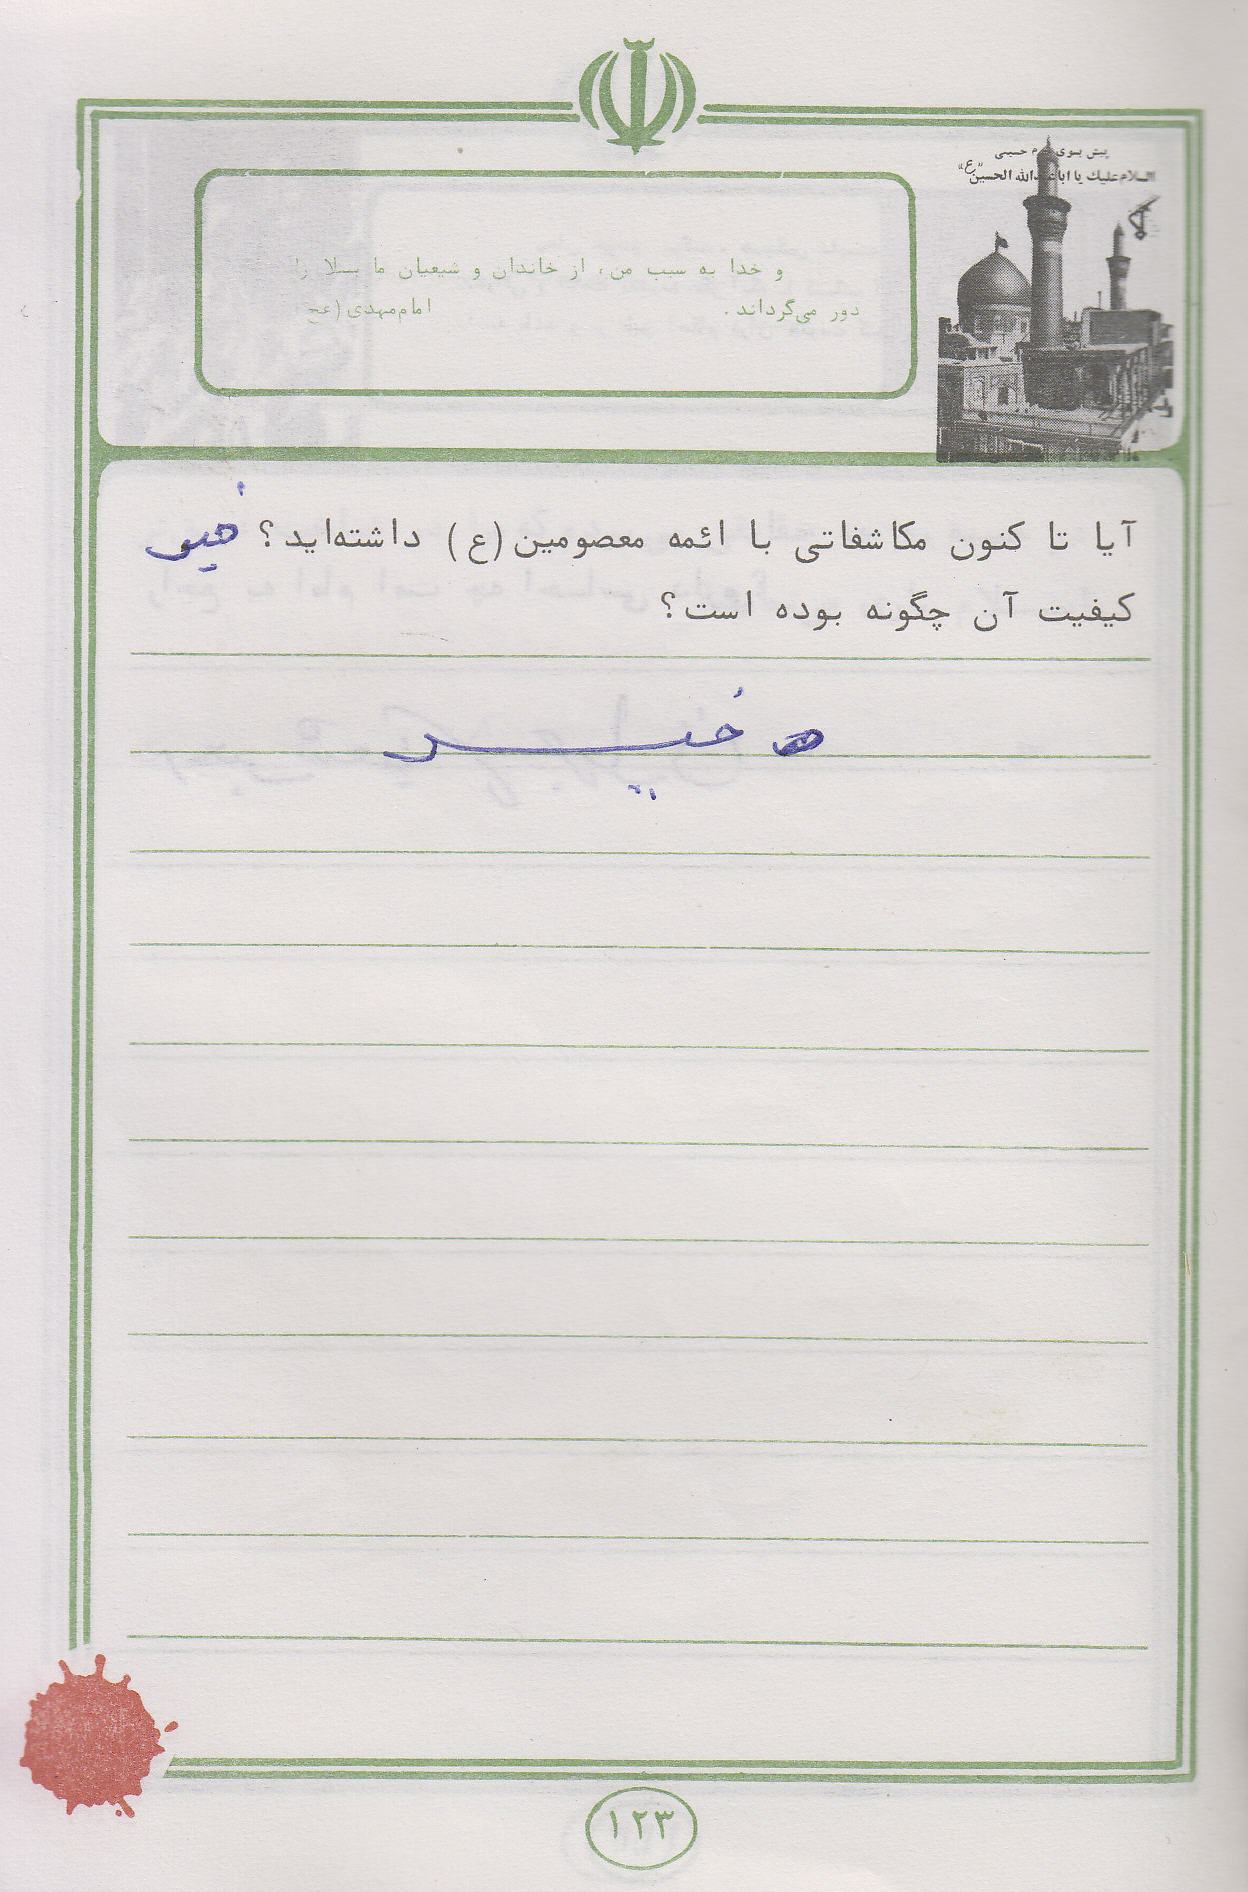 پیش بسوی حرم حسینی
السلام علیك یا اباعبدالله الحسین«ع»
و خدا به سبب من، از خاندان و شیعیان ما بلا را
دور می‌گرداند. امام‌مهدی(عج
آیا تا کنون مکاشفاتی با ائمه معصومین(ع) داشته‌اید؟ خیر
کیفیت آن چگونه بوده است؟
خیر
۱۲۳